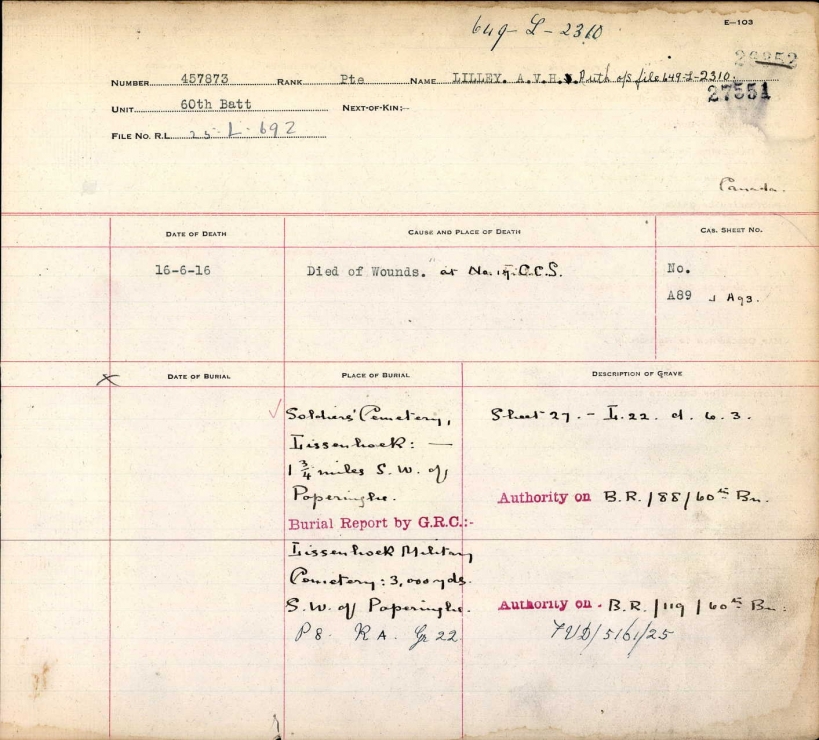 649-L-2310
E-103
26252
NUMBER 457873 RANK Pte NAME LILLEY. A.V.H. Auth o/s file 649-L-2310.
27551
UNIT 60th Batt NEXT-OF-KIN:-
FILE No. R.L. 25-L-692
Canada.
DATE OF DEATH CAUSE AND PLACE OF DEATH CAS. SHEET NO.
16-6-16 Died of Wounds. at No. C.C.S. No.
A89 A93.
X DATE OF BURIAL PLACE OF BURIAL DESCRIPTION OF GRAVE
✓ Soldiers' Cemetery, Sheet 27. - L. 22. d. 6. 3.
Lissenhoek: —
1 3/4 miles S.W. of
Poperinghe. Authority on B.R./88/60th Bn.
Burial Report by G.R.C.:-
Lissenhoek Military
Cemetery: 3,000 yds.
S.W. of Poperinghe. Authority on B.R./119/60th Bn.
P 8. R A. Gr 22